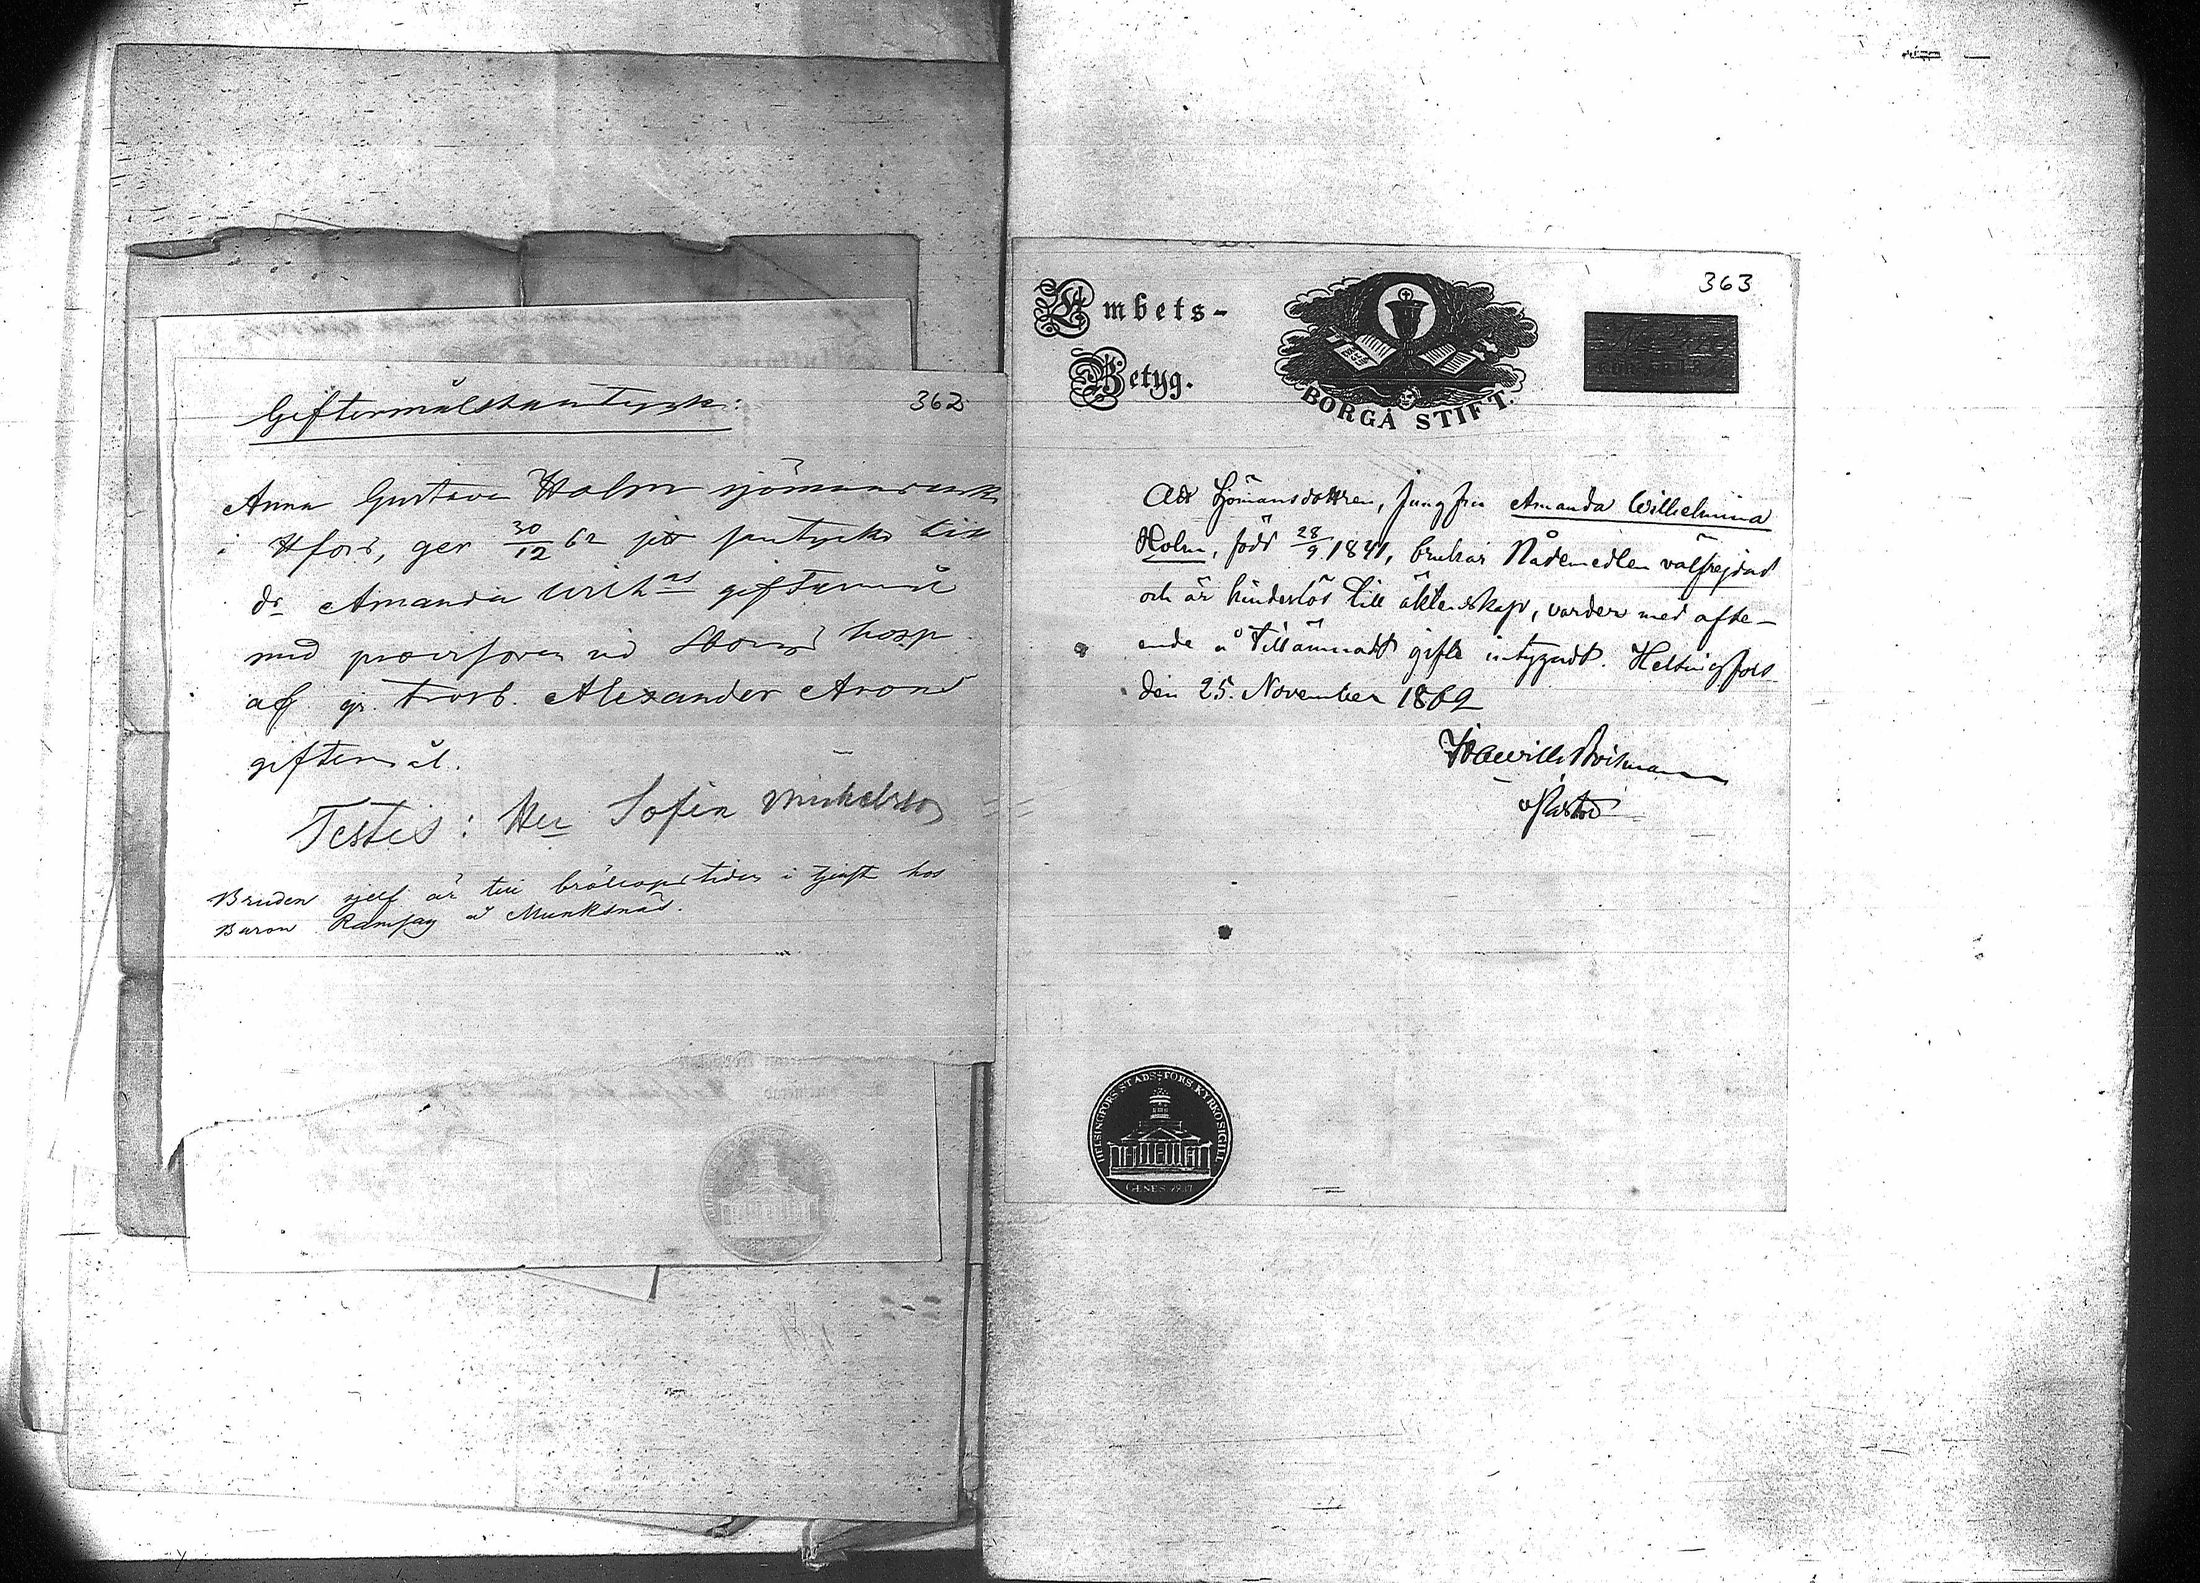 Giftermålssamtycke:
362
Anna Gustava Holm sjömansenka
i Hfors, ger 30/12 62 sitt samtycke till
dr Amanda Wilhas giftermål
med provisoren vid hosp.
af gr. Alexander Arons
giftermål.
Testis: Sofia Mickelsson
Bruden sjelf är till bröllopstiden i tjenst hos
Baron Ramsay å Munksnäs.
363
Embets-
Betyg.
BORGÅ STIFT.
Att Sjömansdottren, Jungfru Amanda Wilhelmina
Holm, född 28/9 1841, brukar Nådemedlen välfrejdad
och är hinderlös till äktenskap, varder med afse-
ende å tillämnadt gifte intygadt. Helsingfors
den 25. November 1862
vPastor
HELSINGFORS STADS-FÖRS: KYRKOSIGILL